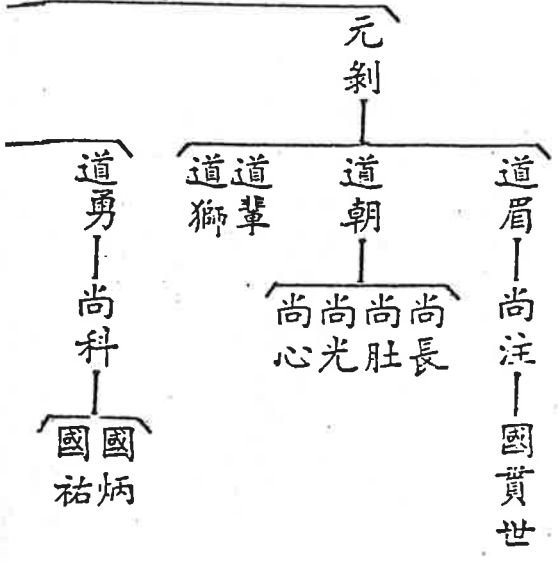 元剝
道眉
尚注
國貰世
道朝
尚長
尚肚
尚光
尚心
道輩
道獅
道勇
尚科
國炳
國祐